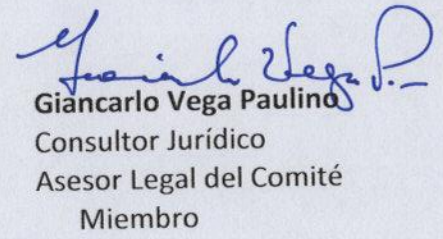 Giancarlo Vega P.
Giancarlo Vega Paulino
Consultor Jurídico
Asesor Legal del Comité
Miembro